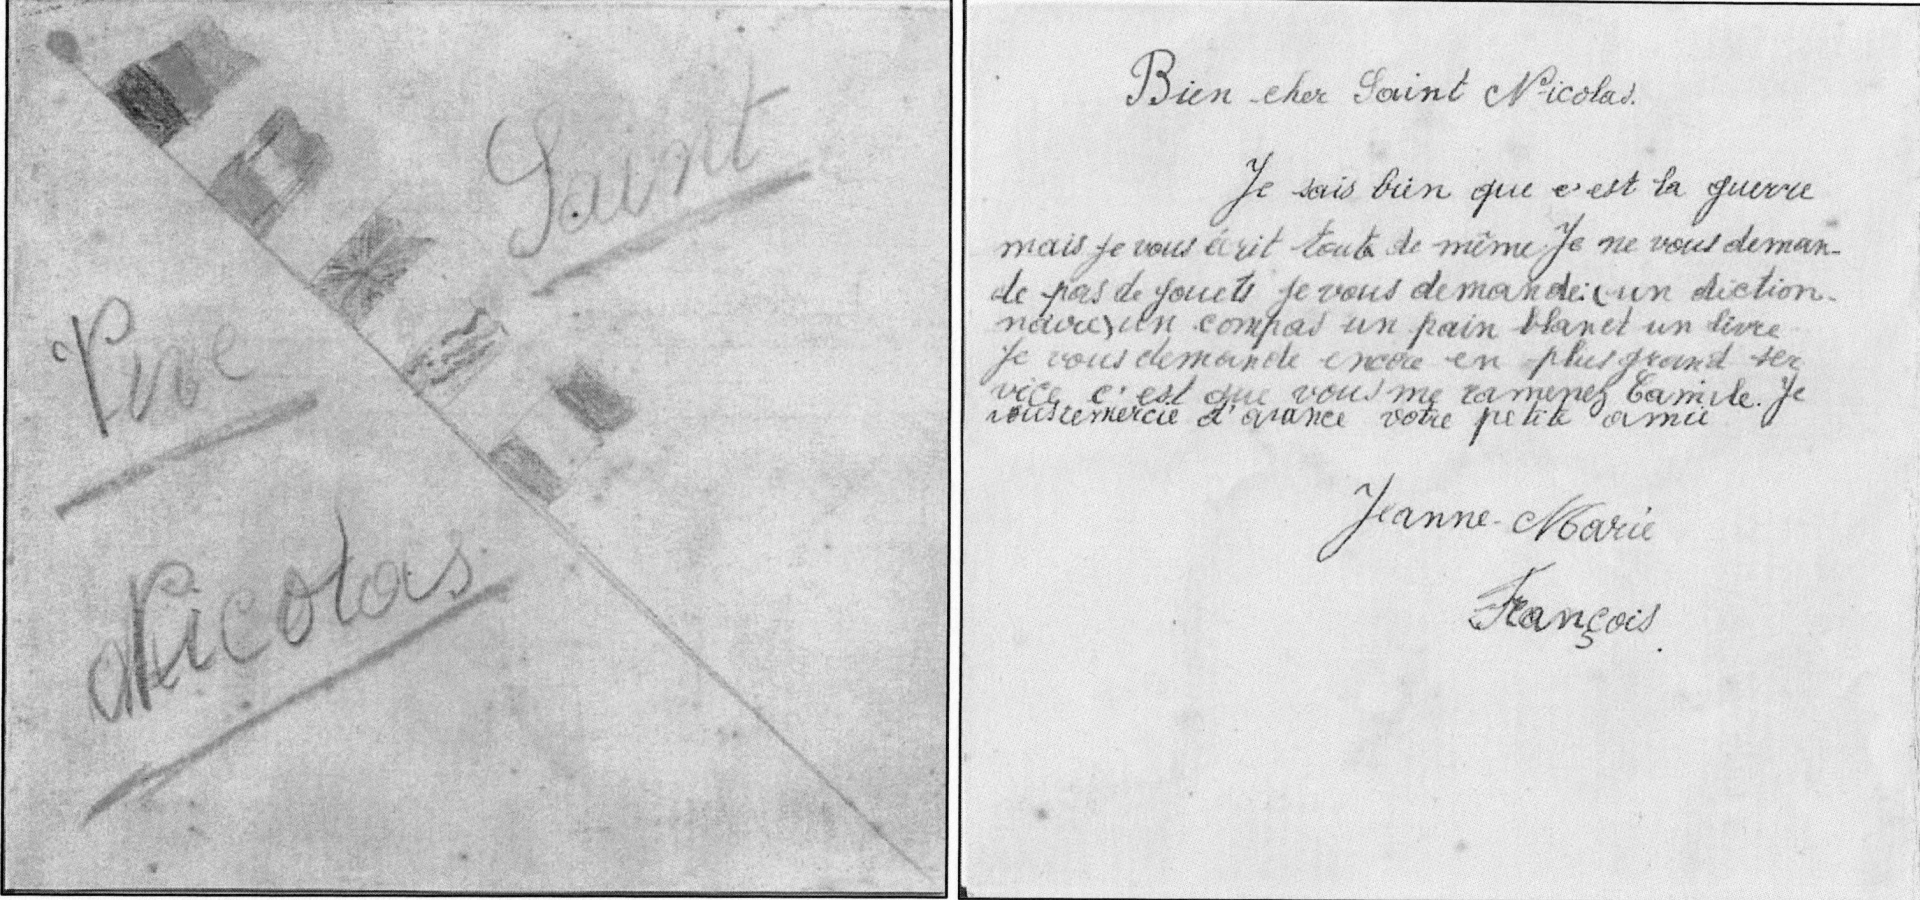 Vive
Saint
Nicolas
Bien cher Saint Nicolas.
Je sais bien que c'est la guerre
mais je vous écrit tout de même Je ne vous deman-
de pas de jouets je vous demande: (un diction-
naire) un compas un pain blanct un livre
Je vous demande encore en plus grand ser
vice c'est que vous me ramenez Camile. Je
vous remercie d'avance votre petite amie
Jeanne-Marie
François.